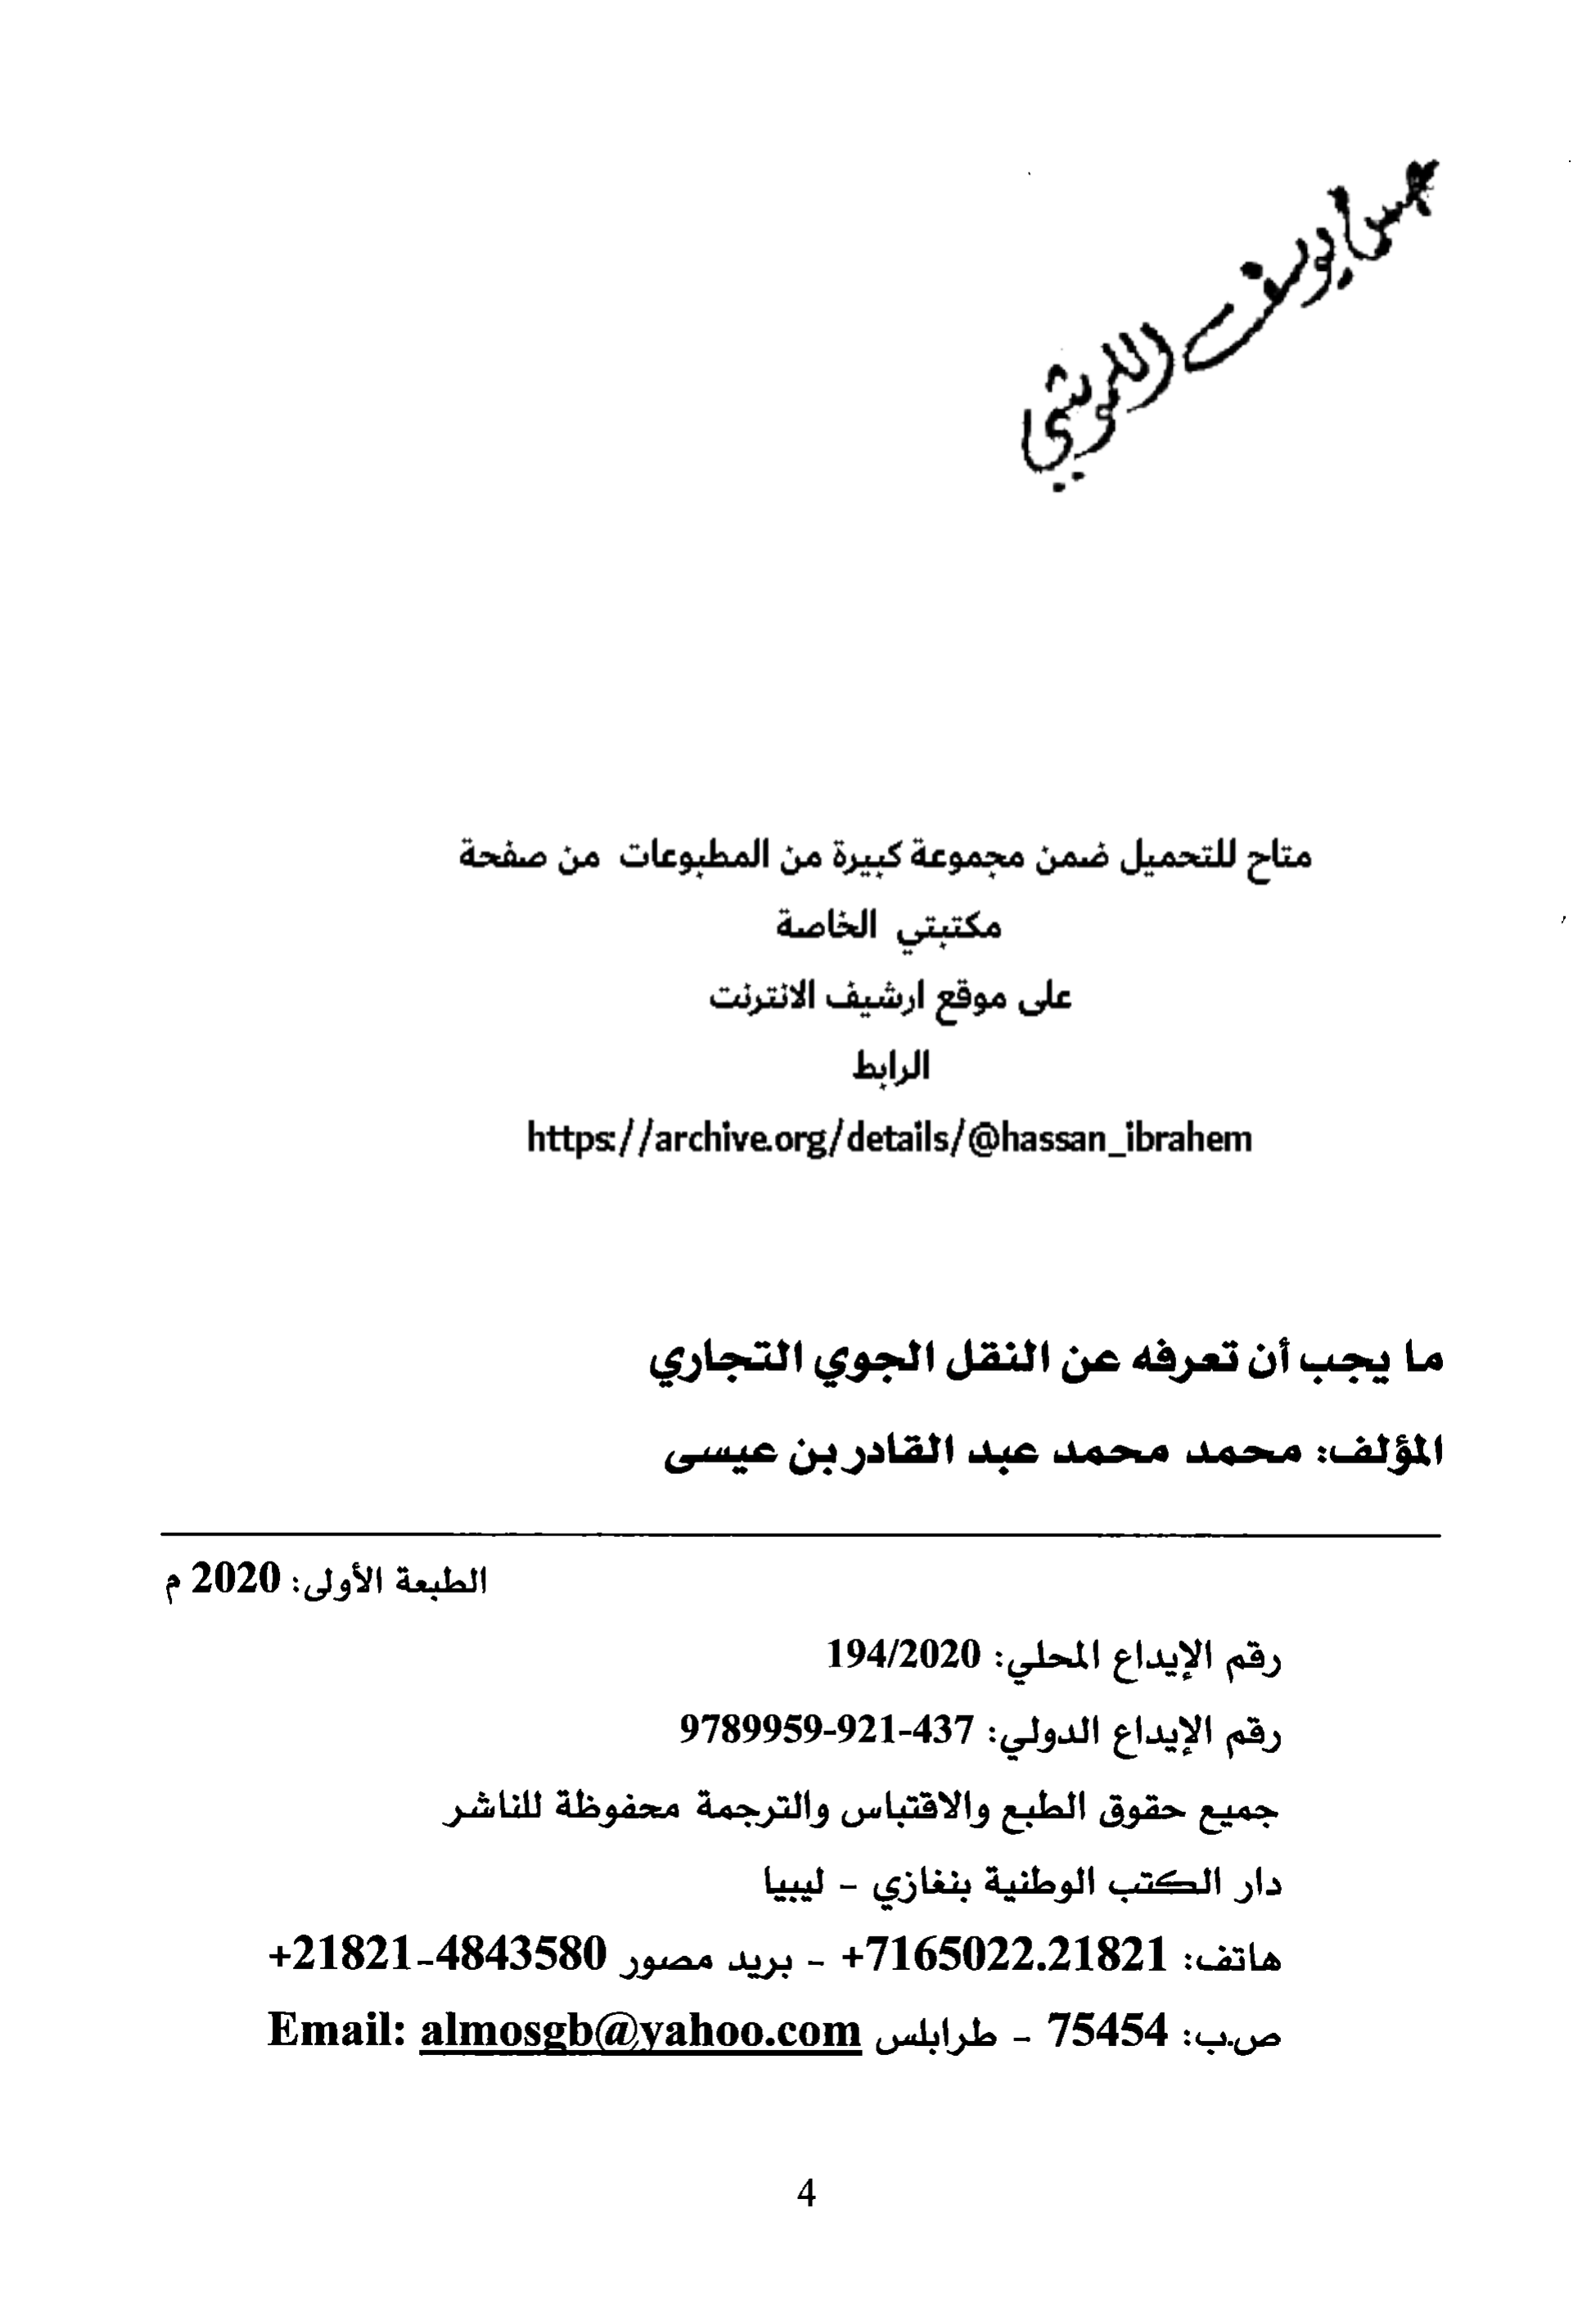 يوسف اللموشي
متاح للتحميل ضمن مجموعة كبيرة من المطبوعات من صفحة
مكتبتي الخاصة
على موقع ارشيف الانترنت
الرابط
https://archive.org/details/@hassan_ibrahem
ما يجب أن تعرفه عن النقل الجوي التجاري
المؤلف: محمد محمد عبد القادر بن عيسى
الطبعة الأولى: 2020 م
رقم الإيداع المحلي: 194/2020
رقم الإيداع الدولي: 9789959-921-437
جميع حقوق الطبع والاقتباس والترجمة محفوظة للناشر
دار الكتب الوطنية بنغازي – ليبيا
هاتف: 7165022.21821+ – بريد مصور 4843580-21821+
ص.ب: 75454 – طرابلس Email: almosgb@yahoo.com
4